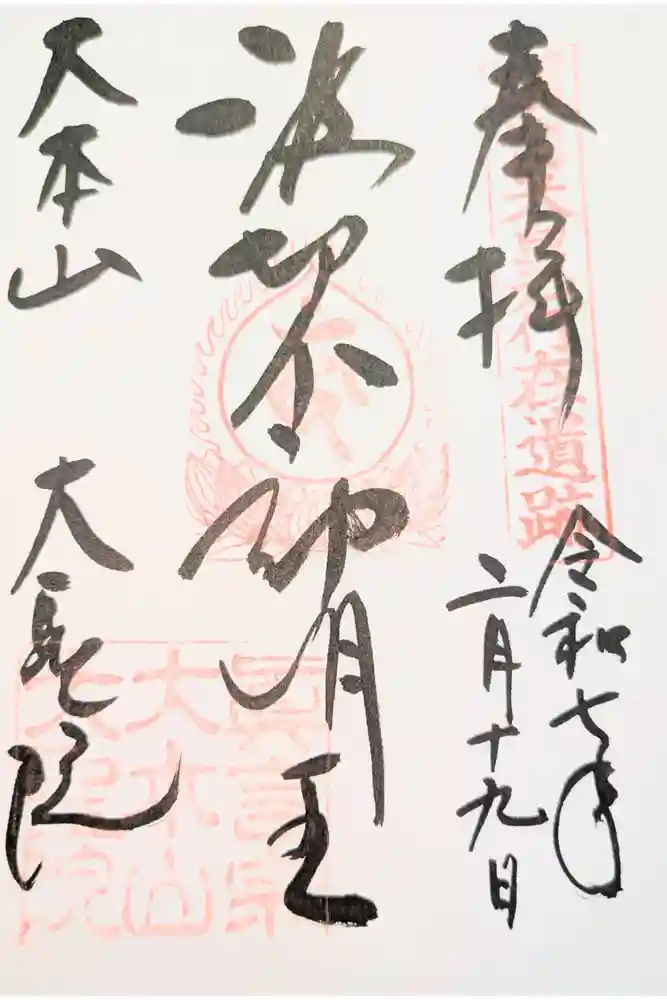 奉拝
令和七年
二月十九日
波切不動明王
大本山 大聖院
眞言宗
大本山
大聖院